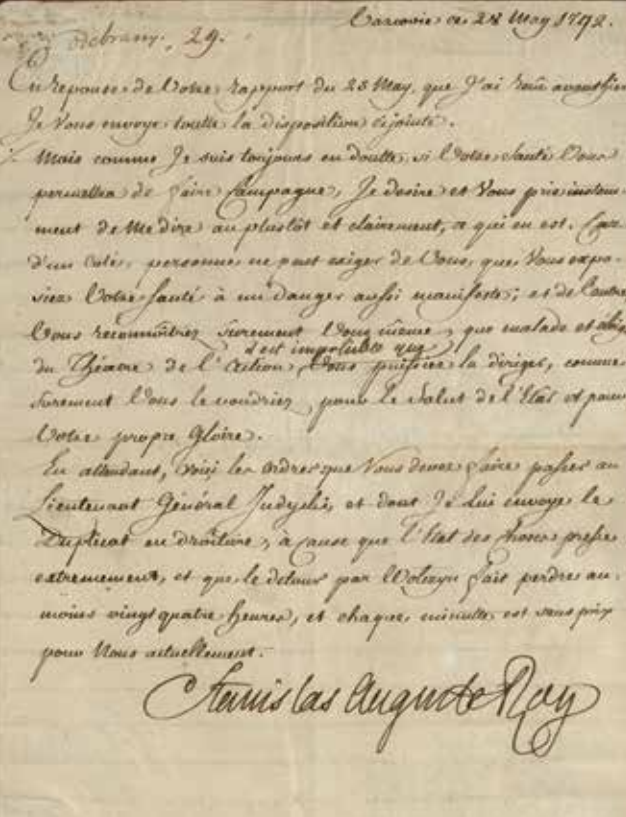 Varsovie ce 28 May 1792.
odebrany. 29.
En reponse de Votre rapport du 25 May, que J'ai reçû avanthier
Je Vous envoye toutte la disposition cijointe.
Mais comme Je suis toujours en doutte, si Votre santé Vous
permettra de faire Campagne, Je desire et Vous prie instam-
ment de Me dire au plustôt et clairement, ce qui en est. Car
d'un coté, personne ne peut exiger de Vous, que Vous expo-
siez Votre santé à un danger aussi manifeste; et de l'autre
Vous reconnoîtrez surement Vous même, que malade et
il est impossible que
du Théatre de l'Action, Vous puissiez la diriger, comme
surement Vous le voudriez, pour le Salut de l'Etat et pour
Votre propre Gloire.
En attendant, voici les ordres que Vous devez faire passer au
Lieutenant Général Judycki, et dont Je Lui envoye le
Duplicat en droiture, à cause que l'Etat des choses presse
extremement, et que le detour par Wolczyn fait perdre au
moins vingt quatre heures, et chaque minutte est sans prix
pour Nous actuellement.
Stanislas Auguste Roy